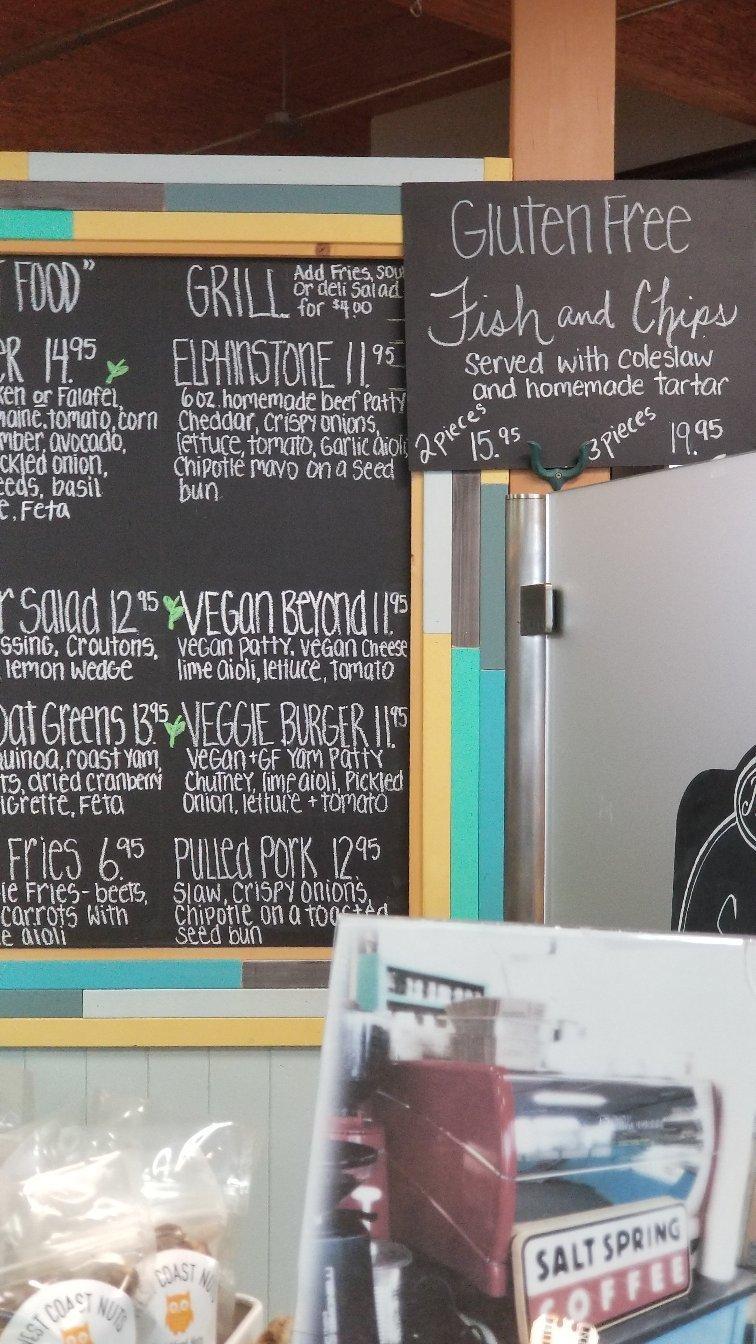 FOOD"
14.95
or Falafel,
tomato, corn
avocado,
onion,
basil
Feta
Salad 12.95
Croutons,
lemon wedge
Greens 13.95
roast yam,
dried cranberry
Feta
Fries 6.95
Fries - beets,
carrots with
aioli
GRILL
Add Fries, Soup
Or deli Salad
for $4.00
ELPHINSTONE 11.95
6 oz. homemade beef Patty
Cheddar, crispy onions,
lettuce, tomato, Garlic aioli
Chipotle mayo on a Seed
bun
VEGAN Beyond 11.95
vegan patty. vegan cheese
lime aioli, lettuce, tomato
VEGGIE BURGER 11.95
Vegan + GF Yam Patty
Chutney, lime aioli, Pickled
Onion, lettuce + tomato
PULLED PORK 12.95
Slaw, Crispy onions,
Chipotle on a toasted
seed bun
Gluten Free
Fish and Chips
Served with coleslaw
and homemade tartar
2 pieces 15.95
3 pieces 19.95
SALT SPRING
COFFEE
COAST NUTS
COAST NUTS